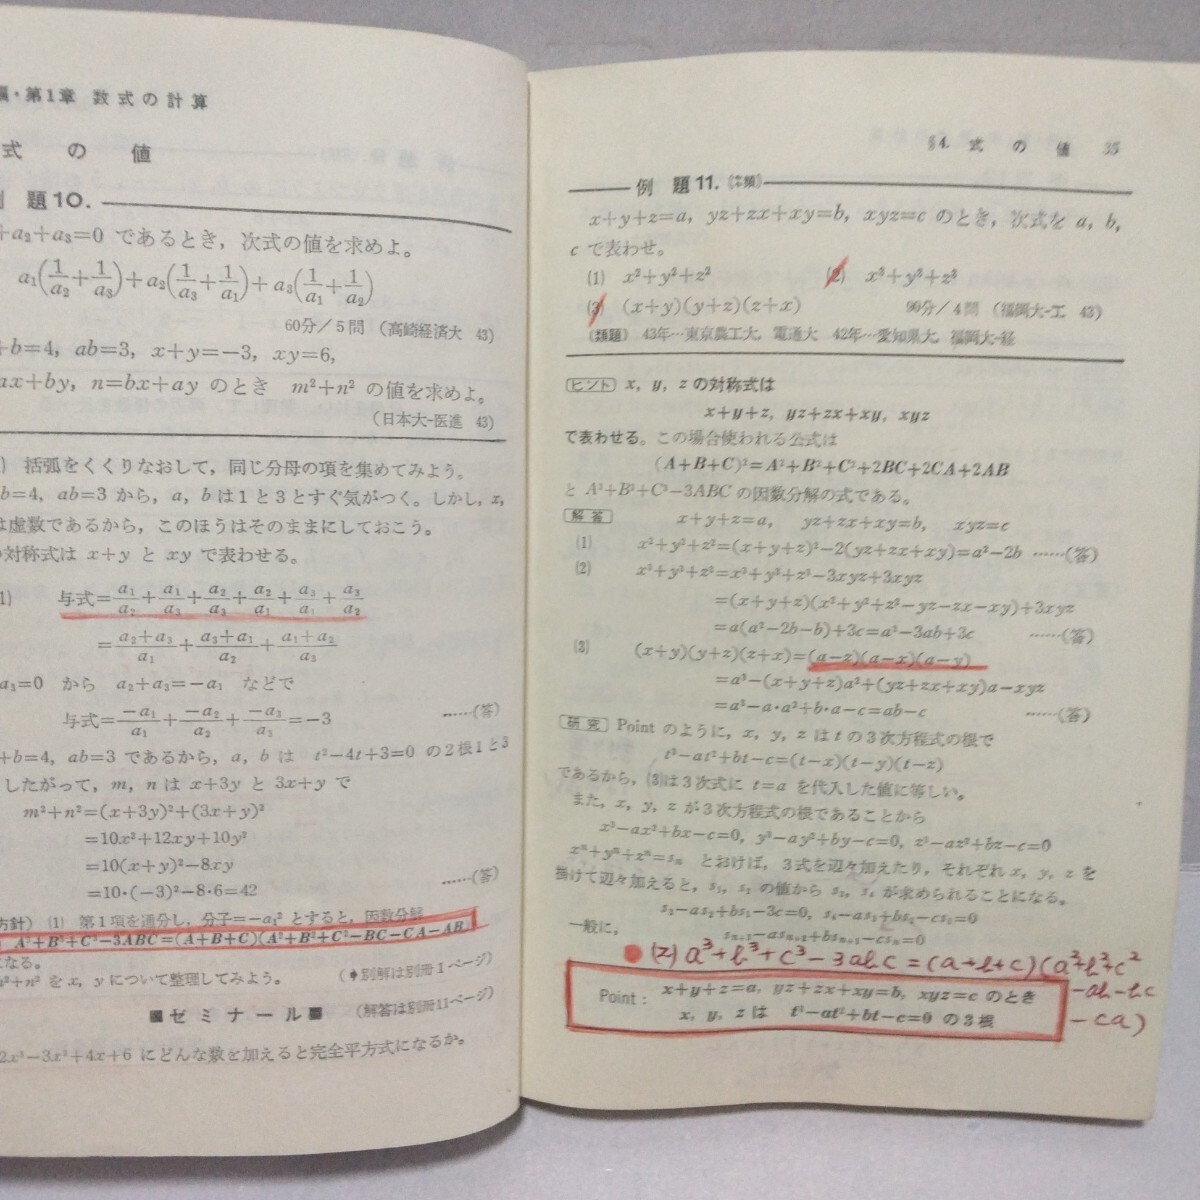 編・第1章 数式の計算
式の値
例題10.
+a₂+a₃=0 であるとき，次式の値を求めよ。
a₁(1/a₂+1/a₃)+a₂(1/a₃+1/a₁)+a₃(1/a₁+1/a₂)
60分/5問 (高崎経済大 43)
+b=4, ab=3, x+y=-3, xy=6,
ax+by, n=bx+ay のとき m²+n² の値を求めよ。
(日本大-医進 43)
) 括弧をくくりなおして，同じ分母の項を集めてみよう。
b=4, ab=3 から，a, b は1と3とすぐ気がつく。しかし，x,
は虚数であるから，このほうはそのままにしておこう。
の対称式は x+y と xy で表わせる。
1) 与式=a₁/a₂+a₁/a₃+a₂/a₃+a₂/a₁+a₃/a₁+a₃/a₂
=(a₂+a₃)/a₁+(a₃+a₁)/a₂+(a₁+a₂)/a₃
a₃=0 から a₂+a₃=-a₁ などで
与式=-a₁/a₁+-a₂/a₂+-a₃/a₃=-3 ……(答)
+b=4, ab=3 であるから，a, b は t²-4t+3=0 の2根1と3
したがって，m, n は x+3y と 3x+y で
m²+n²=(x+3y)²+(3x+y)²
=10x²+12xy+10y²
=10(x+y)²-8xy
=10・(-3)²-8・6=42 ……(答)
方針) (1) 第1項を通分し，分子=-a₁² とすると，因数分解
A³+B³+C³-3ABC=(A+B+C)(A²+B²+C²-BC-CA-AB)
になる。
m²+n² を x, y について整理してみよう。 (➧別解は別冊1ページ)
■ゼミナール■ (解答は別冊11ページ)
2x³-3x²+4x+6 にどんな数を加えると完全平方式になるか。
§4. 式の値 35
例題11.
x+y+z=a, yz+zx+xy=b, xyz=c のとき，次式を a, b,
c で表わせ。
(1) x²+y²+z² (2) x³+y³+z³
(3) (x+y)(y+z)(z+x) 90分/4問 (福岡大-工 43)
《類題》 43年…東京農工大，電通大 42年…愛知県大，福岡大-経
ヒント x, y, z の対称式は
x+y+z, yz+zx+xy, xyz
で表わせる。この場合使われる公式は
(A+B+C)²=A²+B²+C²+2BC+2CA+2AB
と A³+B³+C³-3ABC の因数分解の式である。
解答 x+y+z=a, yz+zx+xy=b, xyz=c
(1) x²+y²+z²=(x+y+z)²-2(yz+zx+xy)=a²-2b ……(答)
(2) x³+y³+z³=x³+y³+z³-3xyz+3xyz
=(x+y+z)(x²+y²+z²-yz-zx-xy)+3xyz
=a(a²-2b-b)+3c=a³-3ab+3c ……(答)
(3) (x+y)(y+z)(z+x)=(a-z)(a-x)(a-y)
=a³-(x+y+z)a²+(yz+zx+xy)a-xyz
=a³-a・a²+b・a-c=ab-c ……(答)
研究 Point のように，x, y, z は t の3次方程式の根で
t³-at²+bt-c=(t-x)(t-y)(t-z)
であるから，(3)は3次式に t=a を代入した値に等しい。
また，x, y, z が3次方程式の根であることから
x³-ax²+bx-c=0, y³-ay²+by-c=0, z³-az²+bz-c=0
xⁿ+yⁿ+zⁿ=sₙ とおけば，3式を辺々加えたり，それぞれ x, y, z を
掛けて辺々加えると，s₁, s₂ の値から s₃, s₄ が求められることになる。
s₃-as₂+bs₁-3c=0, s₄-as₃+bs₂-cs₁=0
一般に， sₙ₊₃-asₙ₊₂+bsₙ₊₁-csₙ=0
(2) a³+b³+c³-3abc=(a+b+c)(a²+b²+c²
-ab-bc
-ca)
Point: x+y+z=a, yz+zx+xy=b, xyz=c のとき
x, y, z は t³-at²+bt-c=0 の3根